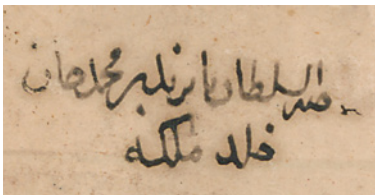 السلطان بايزيد بن محمد خان
خلد ملكه